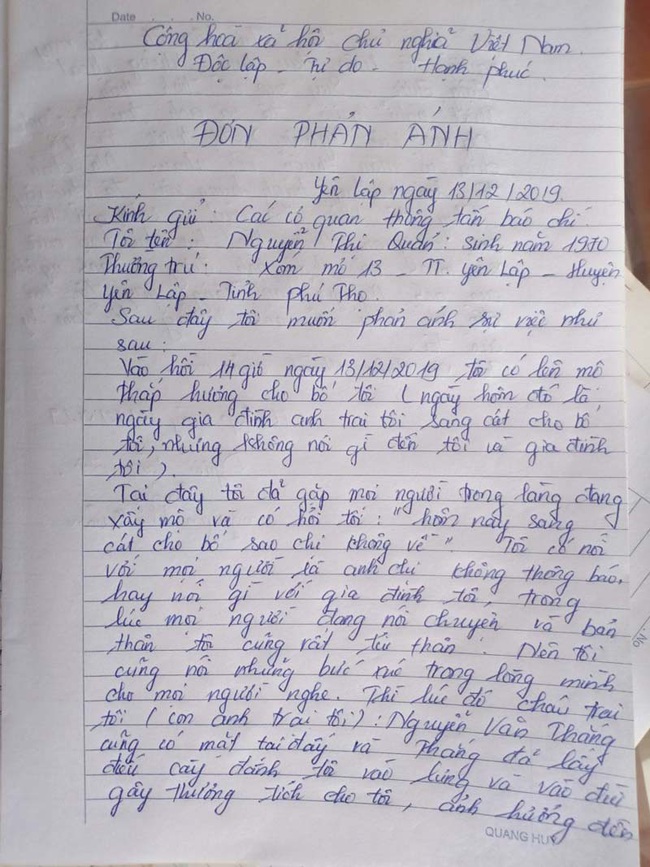 Date . . . . . No.
Cộng hoà xã hội chủ nghĩa Việt Nam.
Độc lập - Tự do - Hạnh phúc.
ĐƠN PHẢN ÁNH
Yên Lập ngày 13/12/2019.
Kính gửi : Các cơ quan thông tấn báo chí.
Tôi tên : Nguyễn Thị Quán : sinh năm 1970
Thường trú : Xóm mố 13 - TT. Yên Lập - Huyện
Yên Lập - Tỉnh Phú Thọ.
Sau đây tôi muốn phản ánh sự việc như
sau :
Vào hồi 14 giờ ngày 13/12/2019, tôi có lên mộ
thắp hương cho bố tôi ( ngày hôm đó là
ngày gia đình anh trai tôi sang cát cho bố
tôi, nhưng không nói gì đến tôi và gia đình
tôi ).
Tại đây tôi đã gặp mọi người trong làng đang
xây mộ và có hỏi tôi : " hôm nay sang
cát cho bố sao chị không về ". Tôi có nói
với mọi người là anh chị không thông báo,
hay nói gì với gia đình tôi, trong
lúc mọi người đang nói chuyện và bản
thân tôi cũng rất tủi thân. Nên tôi
cũng nói những bức xúc trong lòng mình
cho mọi người nghe. Thì lúc đó cháu trai
tôi ( con anh trai tôi ) : Nguyễn Văn Thắng
cũng có mặt tại đấy và Thắng đã lấy
điếu cày đánh tôi vào lưng và vào đùi
gây thương tích cho tôi, ảnh hưởng đến
QUANG HUY
No